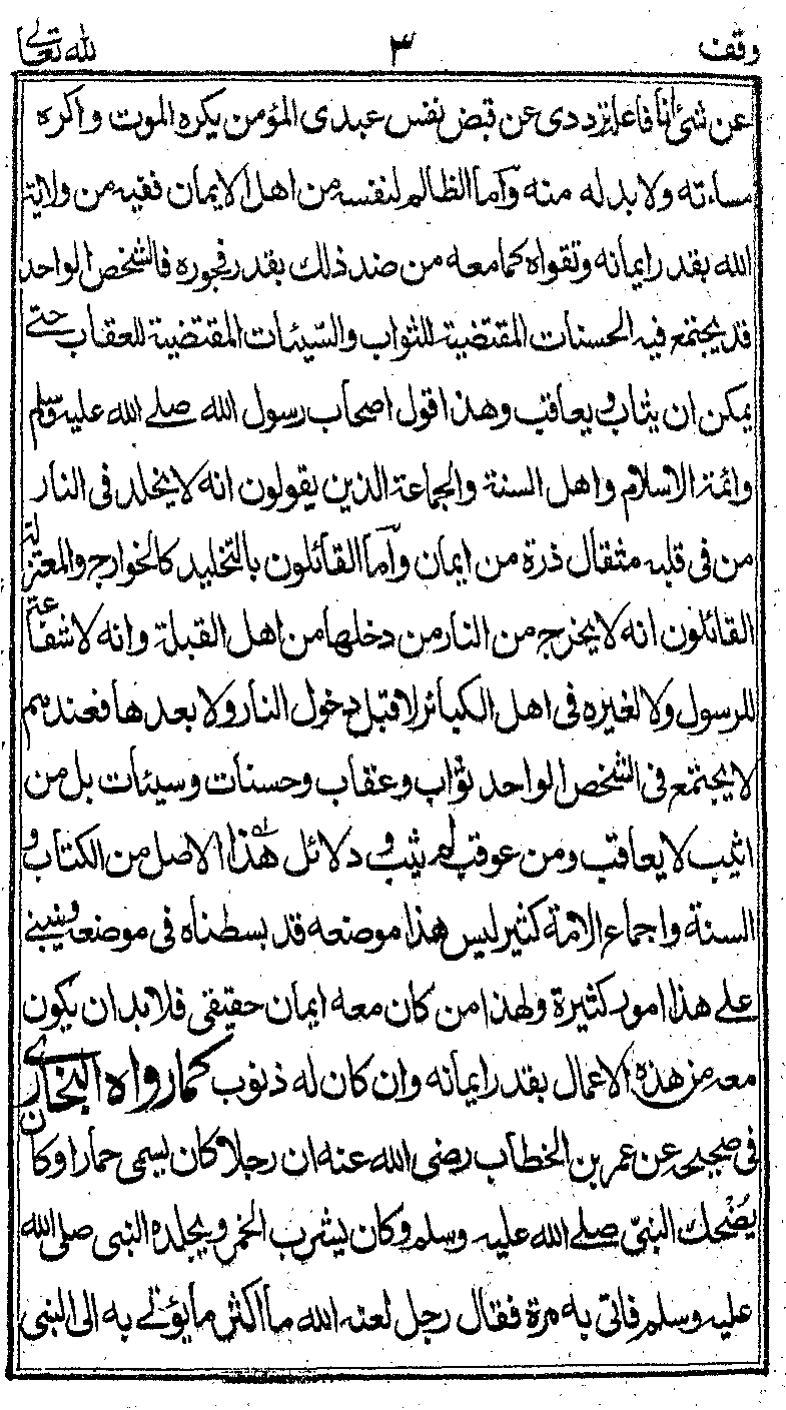 وقف ٣ لله تعالى
عن شئ انا فاعله ترددى عن قبض نفس عبدى المؤمن يكره الموت واكره
مساءته ولا بد له منه وأما الظالم لنفسه من اهل الايمان ففيه من ولاية
الله بقدر ايمانه وتقواه كما معه من ضد ذلك بقدر فجوره فالشخص الواحد
قد يجتمع فيه الحسنات المقتضية للثواب والسيئات المقتضية للعقاب حتے
يمكن ان يثاب ويعاقب وهذا قول اصحاب رسول الله صلے الله عليه وسلم
وائمة الاسلام واهل السنة والجماعة الذين يقولون انه لا يخلد فى النار
من فى قلبه مثقال ذرة من ايمان وأما القائلون بالتخليد كالخوارج والمعتزلة
القائلون انه لا يخرج من النار من دخلها من اهل القبلة وانه لا شفاعة
للرسول ولا لغيره فى اهل الكبائر لا قبل دخول النار ولا بعدها فعندهم
لا يجتمع فى الشخص الواحد ثواب وعقاب وحسنات وسيئات بل من
اثيب لا يعاقب ومن عوقب لم يثب و دلائل هذا الاصل من الكتاب و
السنة واجماع الامة كثير ليس هذا موضعه قد بسطناه فى موضعه وينبنے
علے هذا امور كثيرة ولهذا من كان معه ايمان حقيقى فلا بد ان يكون
معه من هذه الاعمال بقدر ايمانه وان كان له ذنوب كما رواه البخارے
فى صحيحه عن عمر بن الخطاب رضى الله عنه ان رجلا كان يسمى حمارا وكان
يُضْحك النبىّ صلے الله عليه وسلم وكان يشرب الخمر ويجلده النبى صلى الله
عليه وسلم فاتى به مرة فقال رجل لعنه الله ما اكثر ما يؤتے به الى النبى